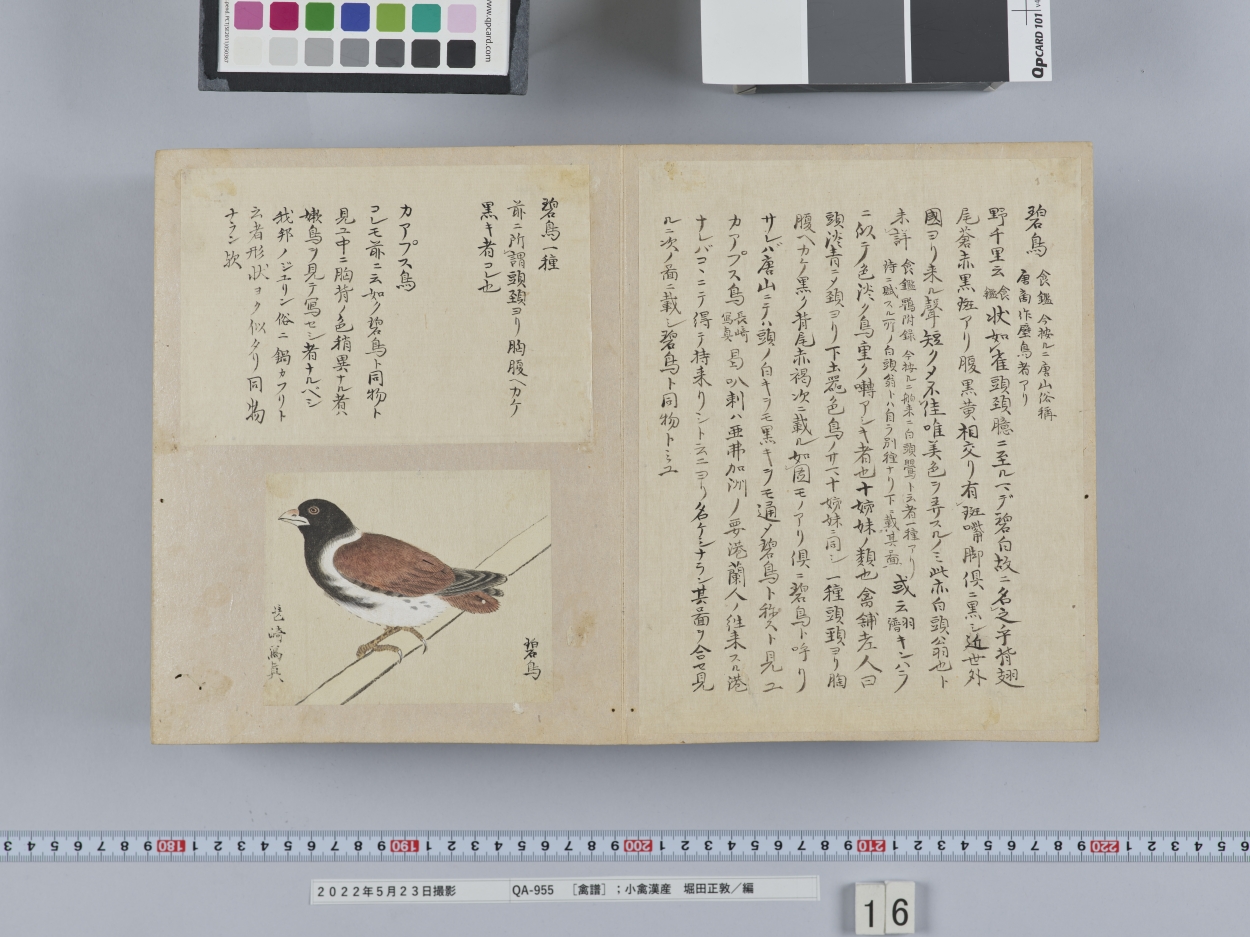 www.qpcard.com
QpCARD 101 v4
碧鳥 食鑑 今按ルニ唐山俗稱
唐商作壁鳥者アリ
野千里云 食鑑 状如雀頭頚臆ニ至ルマデ碧白故ニ名之予背翅
尾蒼赤黒斑アリ腹黒黄相交リ有斑嘴脚倶ニ黒シ近世外
國ヨリ来ル聲短クメ不佳唯美色ヲ弄スルノミ此亦白頭翁也ト
未詳 食鑑 鵯附録 今按ルニ舶来ニ白頭鶯ト云者一種アリ
詩ニ賦スル所ノ白頭翁トハ自ラ別種ナリ下ニ載其啚 或云 キンハラ
ニ似テ色淡ク鳥重ク囀アシキ者也十姉妹ノ類也禽舗老人曰
頭淡青ニメ頚ヨリ下土器色鳥ノサマ十姉妹ニ同シ一種頭頚ヨリ胸
腹ヘカケ黒ク背尾赤褐次ニ載ル如圖モノアリ倶ニ碧鳥ト呼リ
サレバ唐山ニテハ頭ノ白キヲモ黒キヲモ通メ碧鳥ト称スト見ユ
カアプス鳥 長崎寫真 曷叭剌ハ亜弗加洲ノ要港蘭人ノ往来スル港
ナレバコヽニテ得テ持来リシト云ニヨリ名ケシナラン其啚ヲ合セ見
ルニ次ノ啚ニ載シ碧鳥ト同物トミユ
碧鳥一種
前ニ所謂頭頚ヨリ胸腹ヘカケ
黒キ者コレ也
カアプス鳥
コレモ前ニ云如ク碧鳥ト同物ト
見ユ中ニ胸背ノ色稍異ナル者ハ
嫩鳥ヲ見テ寫セシ者ナルベシ
我邦ノジユリン俗ニ鍋カフリト
云者形状ヨク似タリ同物
ナラン歟
碧鳥
長崎寫真
3 2 1 180 9 8 7 6 5 4 3 2 1 190 9 8 7 6 5 4 3 2 1 200 9 8 7 6 5 4 3 2 1 210 9 8 7 6 5 4 3 2 1 220 9 8 7 6 5
2022年5月23日撮影 QA-955 [禽譜];小禽漢産 堀田正敦/編
16